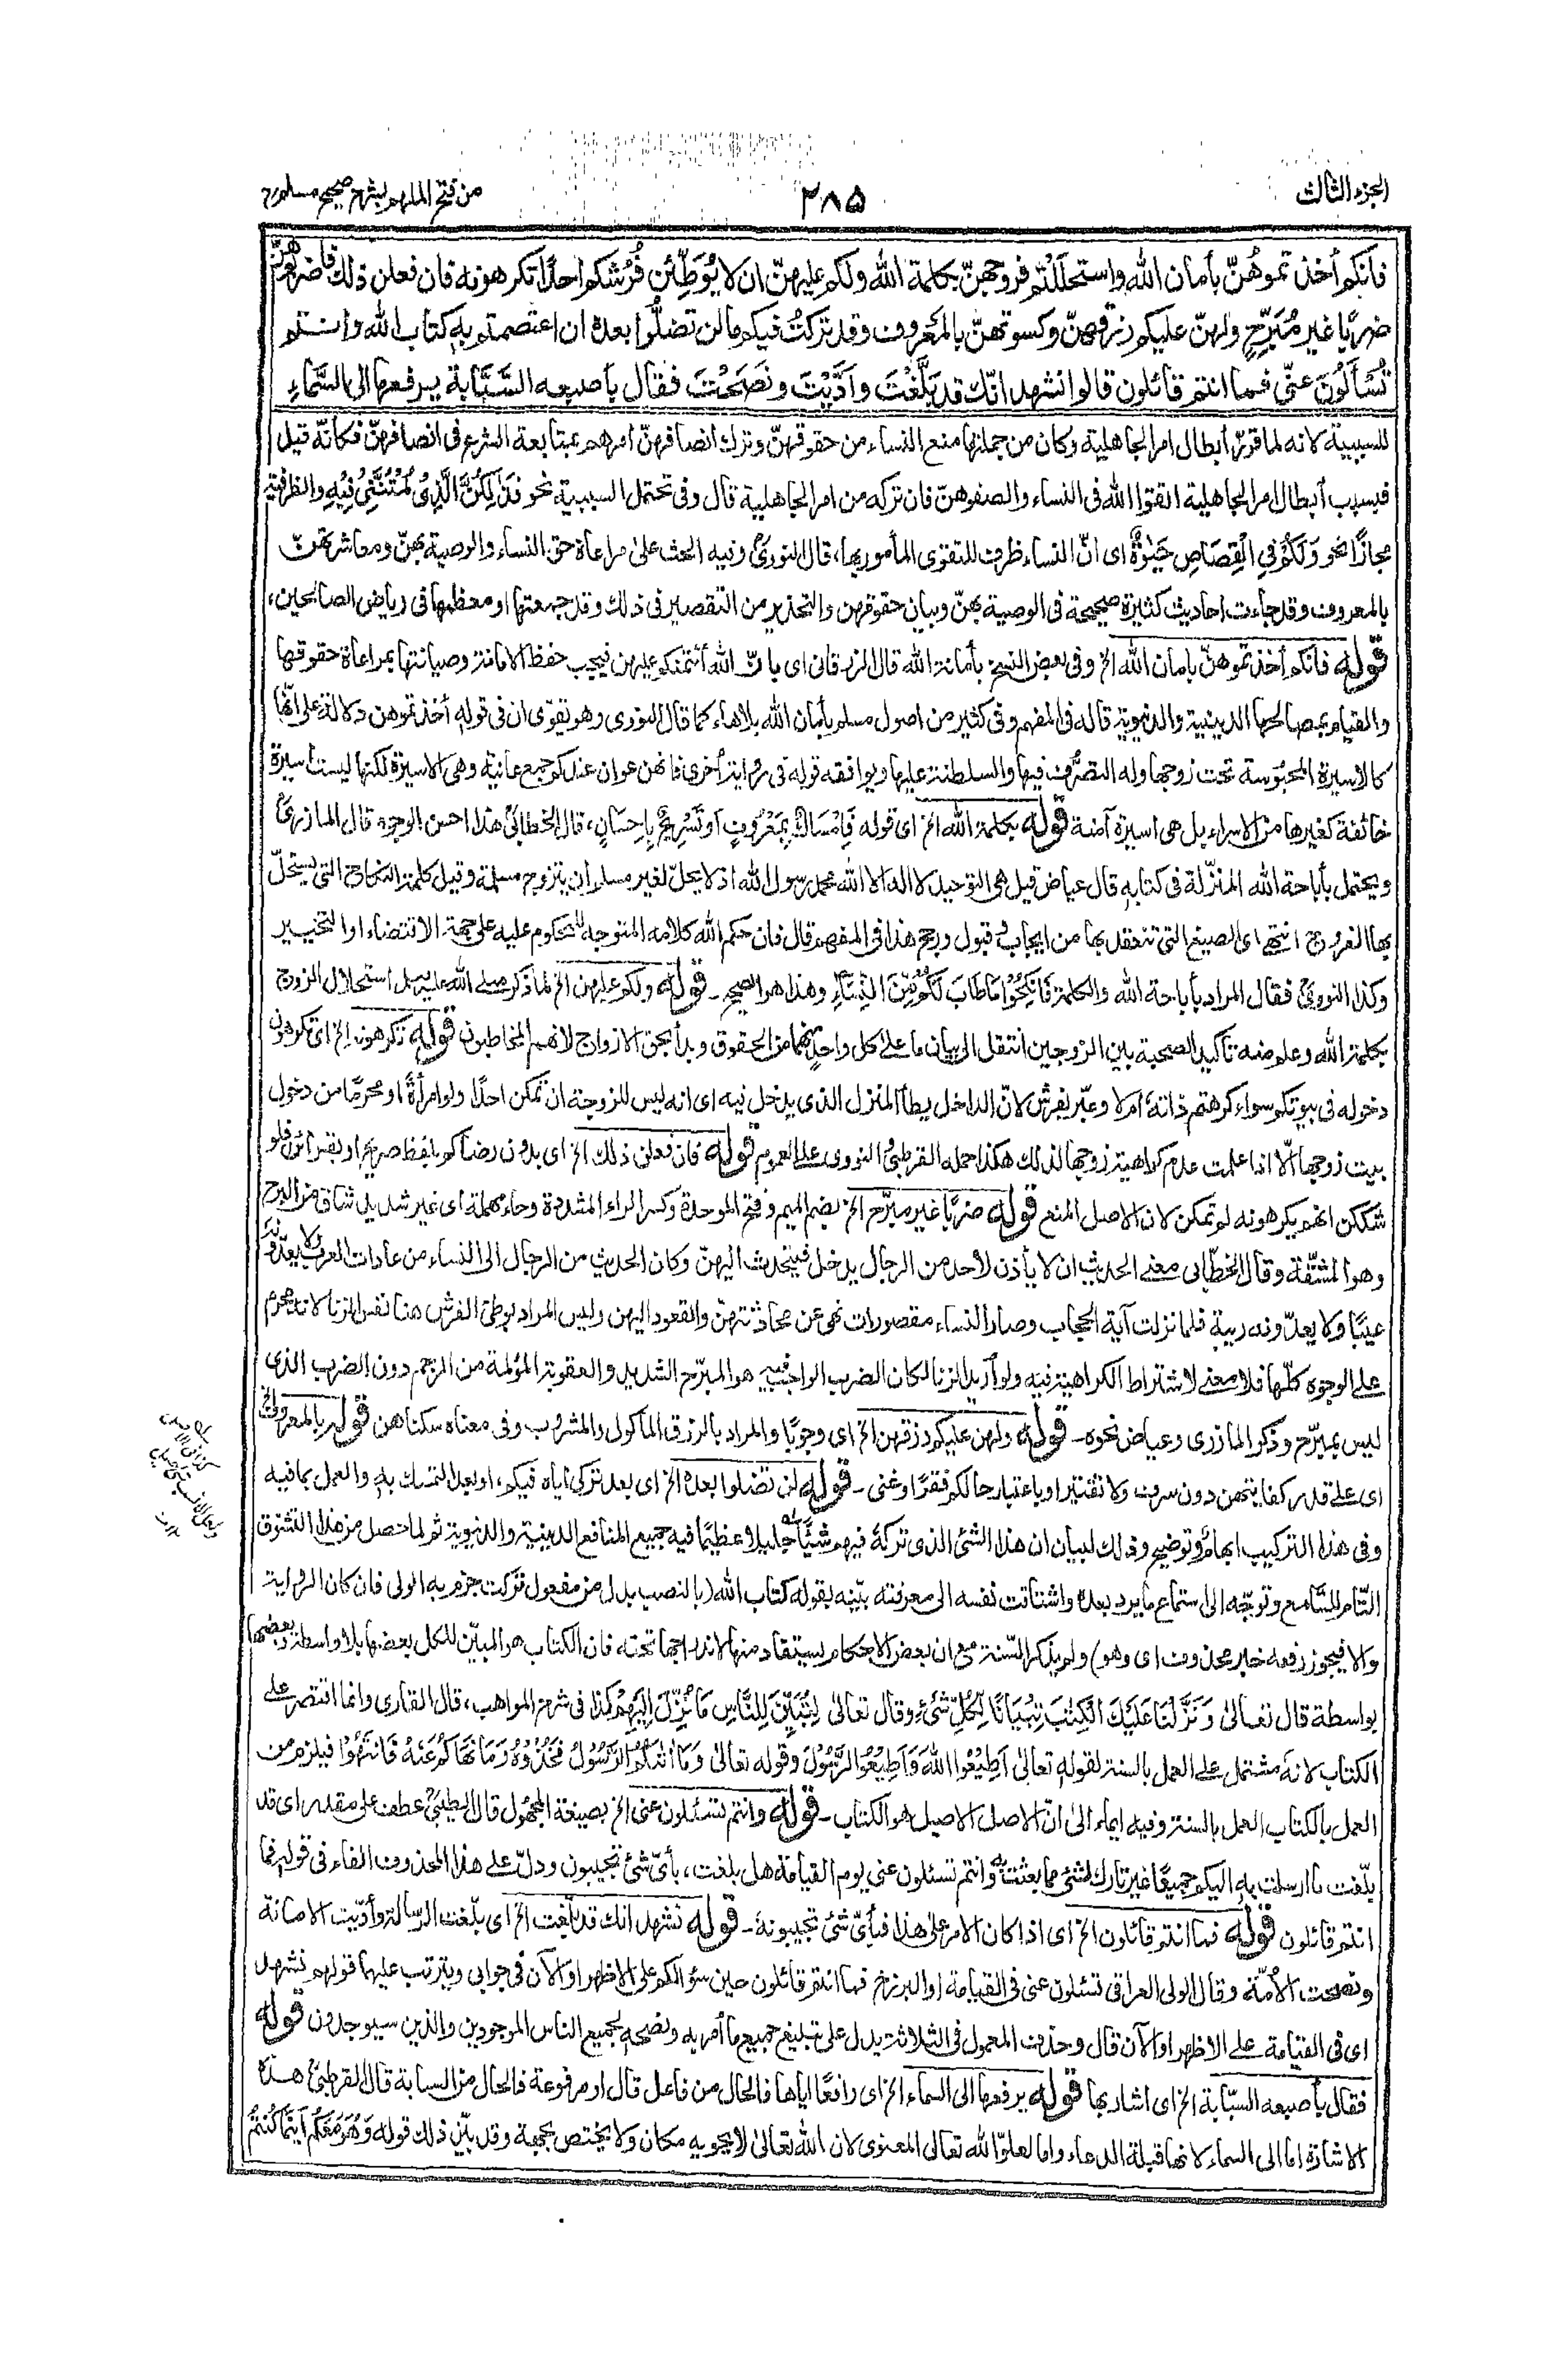 الجزء الثالث
٢٨٥
من فتح الملهم بشرح صحيح مسلم
فانكم أخذتموهُنّ بأمان الله واستحللتم فروجهنّ بكلمة الله ولكم عليهنّ ان لا يُوَطِّئن فُرُشكم احدًا تكرهونه فان فعلن ذلك فاضربوهنّ
ضربًا غير مُبَرِّحٍ ولهنّ عليكم رزقهنّ وكسوتهنّ بالمَعْروف وقد تركتُ فيكم ما لن تضلُّوا بعده ان اعتصمتم به كتابَ الله وانتم
تُسْأَلُونَ عنّي فما انتم قائلون قالوا نشهد انّك قد بَلَّغْتَ وَأَدَّيْتَ ونَصَحْتَ فقال بأصبعه السَّبَّابة يرفعها الى السَّمَاءِ
للسببية لانه لما قرر أبطال امر الجاهلية وكان من جملتها منع النساء من حقوقهنّ وترك انصافهنّ امرهم بمتابعة الشرع فى انصافهنّ فكأنّه قيل
فبسبب أبطال امر الجاهلية اتقوا الله فى النساء والصفوهنّ فان تركه من امر الجاهلية قال وفى تحتمل السببية نحو فَذٰلِكُنَّ الَّذِىْ لُمْتُنَّنِىْ فِيْهِ والظرفية
مجازًا نحو وَلَكُمْ فِى الْقِصَاصِ حَيٰوةٌ اى انّ النساء ظرف للتقوى المأمور بها، قال النووىّ وفيه الحث على مراعاة حق النساء والوصية بهنّ ومعاشرتهنّ
بالمعروف وقد جاءت احاديث كثيرة صحيحة فى الوصية بهنّ وبيان حقوقهن والتحذير من التقصير فى ذلك وقد جمعتها او معظمها فى رياض الصالحين،
قوله فانكم أخذتموهنّ بامان الله الخ وفى بعض النسخ بأمانة الله قال الزرقانى اى بانّ الله أئتمنكم عليهن فيجب حفظ الامانة وصيانتها بمراعاة حقوقها
والقيام بمصالحها الدينية والدنيوية قاله فى المفهم وفى كثير من اصول مسلم بأمان الله بلا هاء كما قال النووى وهو يقوّى ان فى قوله أخذتموهن دلالة على انّها
كالاسيرة المحبوسة تحت زوجها وله التصرُّف فيها والسلطنة عليها ويوافقه قوله فى رواية أخرى فانهن عوان عندكم جمع عانية وهى الاسيرة لكنها ليست اسيرة
خائفة كغيرها من الاسراء بل هى اسيرة آمنة قوله بكلمة الله الخ اى قوله فَاِمْسَاكٌ بِمَعْرُوْفٍ اَوْ تَسْرِيْحٌ بِاِحْسَانٍ، قال الخطابىّ هذا احسن الوجوه قال المازرىّ
ويحتمل بأباحة الله المنزّلة فى كتابه قال عياض قيل هى التوحيد لا اله الا الله محمد رسول الله اذ لا يحلّ لغير مسلم ان يتزوج مسلمة وقيل كلمة النكاح التى يستحلّ
بها الفروج انتهى اى الصيغ التى تنعقد بها من ايجاب وقبول ورجح هذا فى المفهم قال فان حكم الله كلامه المتوجه للمحكوم عليه على جهة الاقتضاء او التخيير
وكذا النووىّ فقال المراد بأباحة الله والكلمة فَانْكِحُوْا مَا طَابَ لَكُمْ مِّنَ النِّسَآءِ وهذا هو الصحيح ـ قوله ولكم عليهن الخ لما ذكر صلى الله عليه وسلم استحلال الزوج
بكلمة الله وعلم منه تأكيد الصحبة بين الزوجين انتقل الى بيان ما على كل واحد منهما من الحقوق وبدأ بحق الازواج لانهم المخاطبون قوله تكرهونه الخ اى تكرهون
دخوله فى بيوتكم سواء كرهتم ذاته ام لا وعبّر بفرش لانّ الداخل يطأ المنزل الذى يدخل فيه اى انه ليس للزوجة ان تمكن احدًا ولو امرأةً او محرمًا من دخول
بيت زوجها الّا اذا علمت عدم كراهية زوجها لذلك هكذا حمله القرطبىّ والنووى على العموم قوله فان فعلن ذلك الخ اى بدون رضاكم بلفظ صريح او بقرائن فلو
شككن انهم يكرهونه لم تمكن لان الاصل المنع قوله ضربًا غير مبرّح الخ بضم الميم وفتح الموحدة وكسر الراء المشددة وحاء مهملة اى غير شديد شاق من البرح
وهو المشقّة وقال الخطّابى معنى الحديث ان لا يأذن لأحد من الرجال يدخل فيتحدث اليهنّ وكان الحديث من الرجال الى النساء من عادات العرب ولا يعدّونه
عيبًا ولا يعدّونه ريبة فلما نزلت آية الحجاب وصار النساء مقصورات نهى عن محادثتهنّ والقعود اليهن وليس المراد بوطئ الفرش هنا نفس الزنا لانه محرم
على الوجوه كلّها فلا معنى لاشتراط الكراهية فيه ولو أريد الزنا لكان الضرب الواجب فيه هو المبرّح الشديد والعقوبة المؤلمة من الرجم دون الضرب الذى
ليس بمبرّح وذكر المازرى وعياض نحوه ـ قوله ولهن عليكم رزقهن الخ اى وجوبًا والمراد بالرزق المأكول والمشروب وفى معناه سكناهن قوله بالمعروف الخ
اى على قدر كفايتهن دون سرف ولا تقتير او باعتبار حالكم فقرًا وغنى ـ قوله لن تضلوا بعده الخ اى بعد تركى اياه فيكم، او بعد التمسك به والعمل بما فيه
وفى هذا التركيب ابهام وتوضيح وذلك لبيان ان هذا الشئ الذى تركه فيهم شيئًا جليلا عظيمًا فيه جميع المنافع الدينية والدنيوية ثم لما حصل من هذا التشوق
التّام للسّامع وتوجّه الى استماع ما يرد بعده واشتاقت نفسه الى معرفته بيّنه بقوله كتاب الله (بالنصب بدل من مفعول تركت جزم به الولى فان كان الرواية
والا فيجوز رفعه خبر محذوف اى وهو) ولم يذكر السّنة مع ان بعض الاحكام يستفاد منها لاندراجها تحته فان الكتاب هو المبيّن للكل بعضها بلا واسطة وبعضها
بواسطة قال تعالى وَنَزَّلْنَا عَلَيْكَ الْكِتٰبَ تِبْيَانًا لِّكُلِّ شَىْءٍ وقال تعالى لِتُبَيِّنَ لِلنَّاسِ مَا نُزِّلَ اِلَيْهِمْ كذا فى شرح المواهب، قال القارى وانما اقتصر على
الكتاب لانه مشتمل على العمل بالسنة لقوله تعالى اَطِيْعُوا اللهَ وَاَطِيْعُوا الرَّسُوْلَ وقوله تعالى وَمَا اٰتٰىكُمُ الرَّسُوْلُ فَخُذُوْهُ وَمَا نَهَاكُمْ عَنْهُ فَانْتَهُوْا فيلزم من
العمل بالكتاب العمل بالسنة وفيه ايماء الى انّ الاصل الاصيل هو الكتاب ـ قوله وانتم تسئلون عنى الخ بصيغة المجهول قال الطيبىّ عطف على مقدر اى قد
بلّغت ما ارسلت به اليكم جميعًا غير تارك لشئ مما بعثت به وانتم تسئلون عنى يوم القيامة هل بلغت، بأىّ شئ تجيبون ودلّ على هذا المحذوف الفاء فى قوله فما
انتم قائلون قوله فما انتم قائلون الخ اى اذا كان الامر على هذا فبأىّ شئ تجيبونه ـ قوله نشهد انك قد بلّغت الخ اى بلّغت الرسالة وأدّيت الامانة
ونصحت الأمّة وقال الولى العراقى تسئلون عنى فى القيامة او البرزخ فما انتم قائلون حين سؤالكم على الاظهر او الآن فى جوابى ويترتب عليهما قولهم نشهد
اى فى القيامة على الاظهر او الآن قال وحذف المعمول فى الثلاثة يدل على تبليغ جميع ما أمر به ونصحه لجميع الناس الموجودين والذين سيوجدون قوله
فقال بأصبعه السبّابة الخ اى اشار بها قوله يرفعها الى السماء الخ اى رافعًا اياها فالحال من فاعل قال او مرفوعة فالحال من السبابة قال القرطبىّ هذه
الاشارة اما الى السماء لانها قبلة الدعاء واما لعلوّ الله تعالى المعنوى لان الله تعالى لا يحويه مكان ولا يختص بجهة وقد بيّن ذلك قوله وَهُوَ مَعَكُمْ اَيْنَمَا كُنْتُمْ